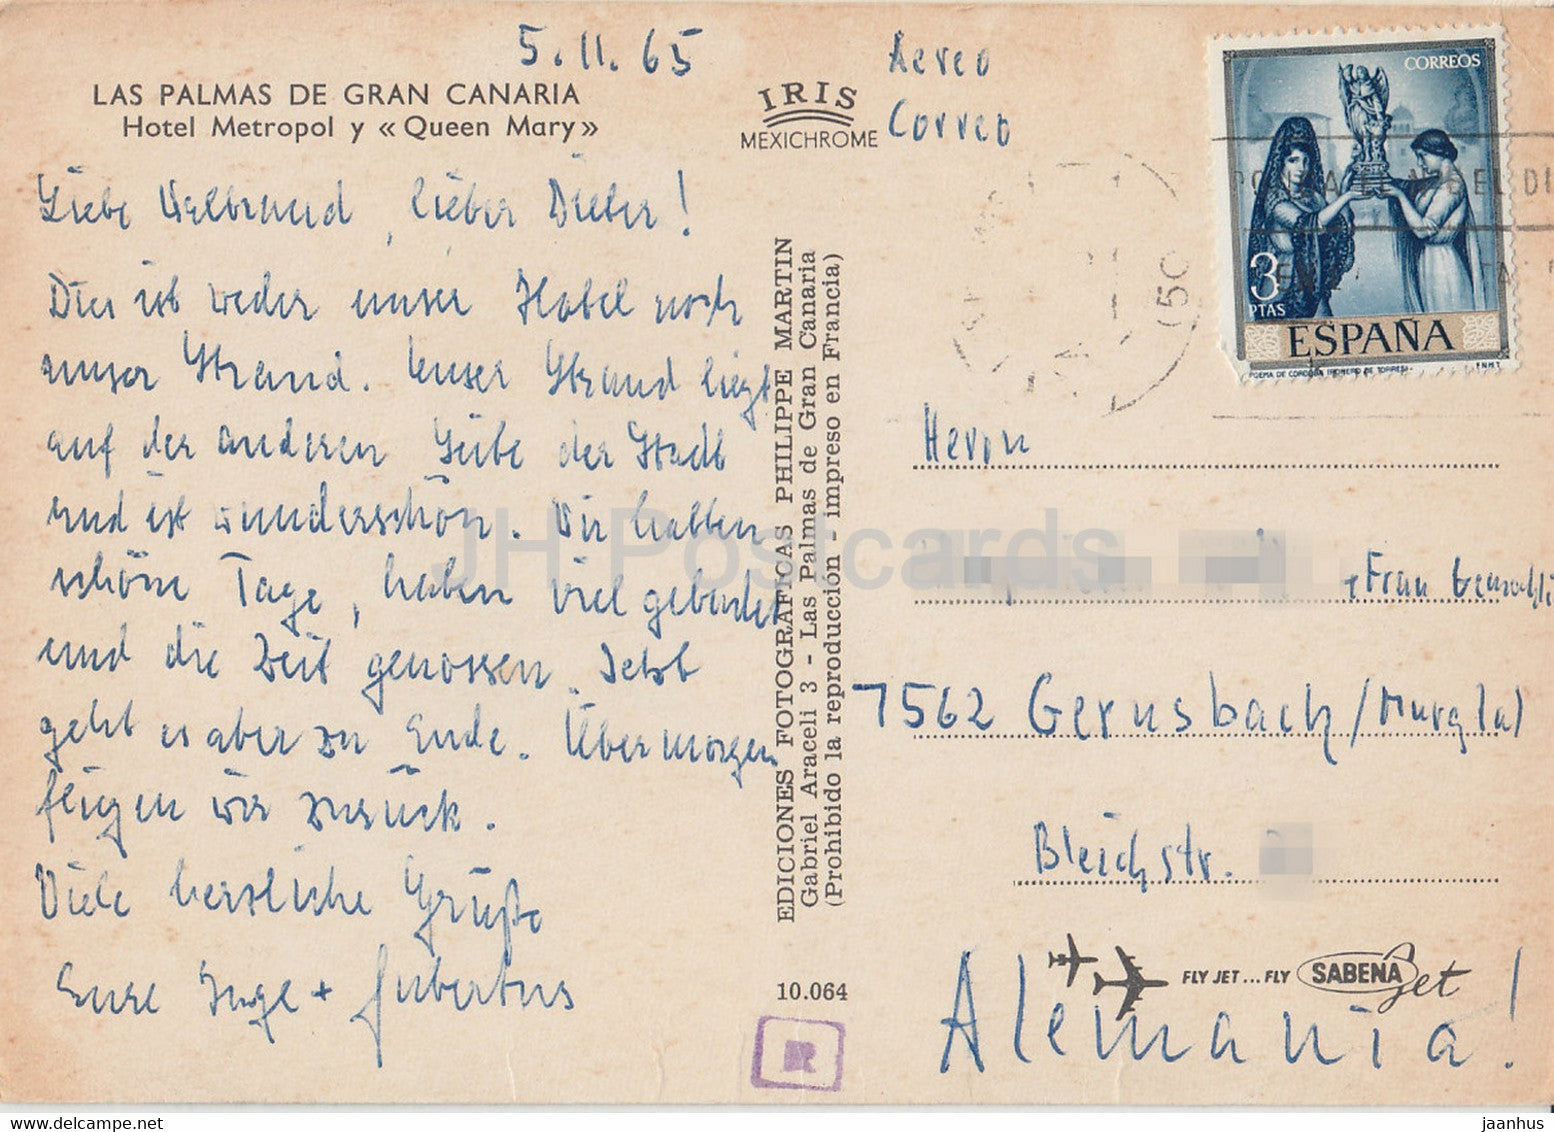 5.11.65
LAS PALMAS DE GRAN CANARIA
Hotel Metropol y « Queen Mary »
Liebe Waltraud, lieber Dieter!
Dies ist weder unser Hotel noch
unser Strand. Unser Strand liegt
auf der anderen Seite der Stadt
und ist wunderschön. Wir hatten
schöne Tage, haben viel gebadet
und die Zeit genossen. Jetzt
geht es aber zu Ende. Übermorgen
fliegen wir zurück.
Viele herzliche Grüße
Eure Inge + Hubertus
IRIS
MEXICHROME
EDICIONES FOTOGRAFICAS PHILIPPE MARTIN
Gabriel Araceli 3 - Las Palmas de Gran Canaria
(Prohibido la reproducción - impreso en Francia)
10.064
R
Aereo
Correo
CORREOS
3
PTAS
ESPAÑA
POEMA DE CORDOBA (ROMERO DE TORRES)
F.N.M.T.
Herrn
+ Frau Gemahlin
7562 Gernsbach/Murgtal
Bleichstr.
FLY JET... FLY SABENA Jet
Alemania!
JH Postcards
jaanhus